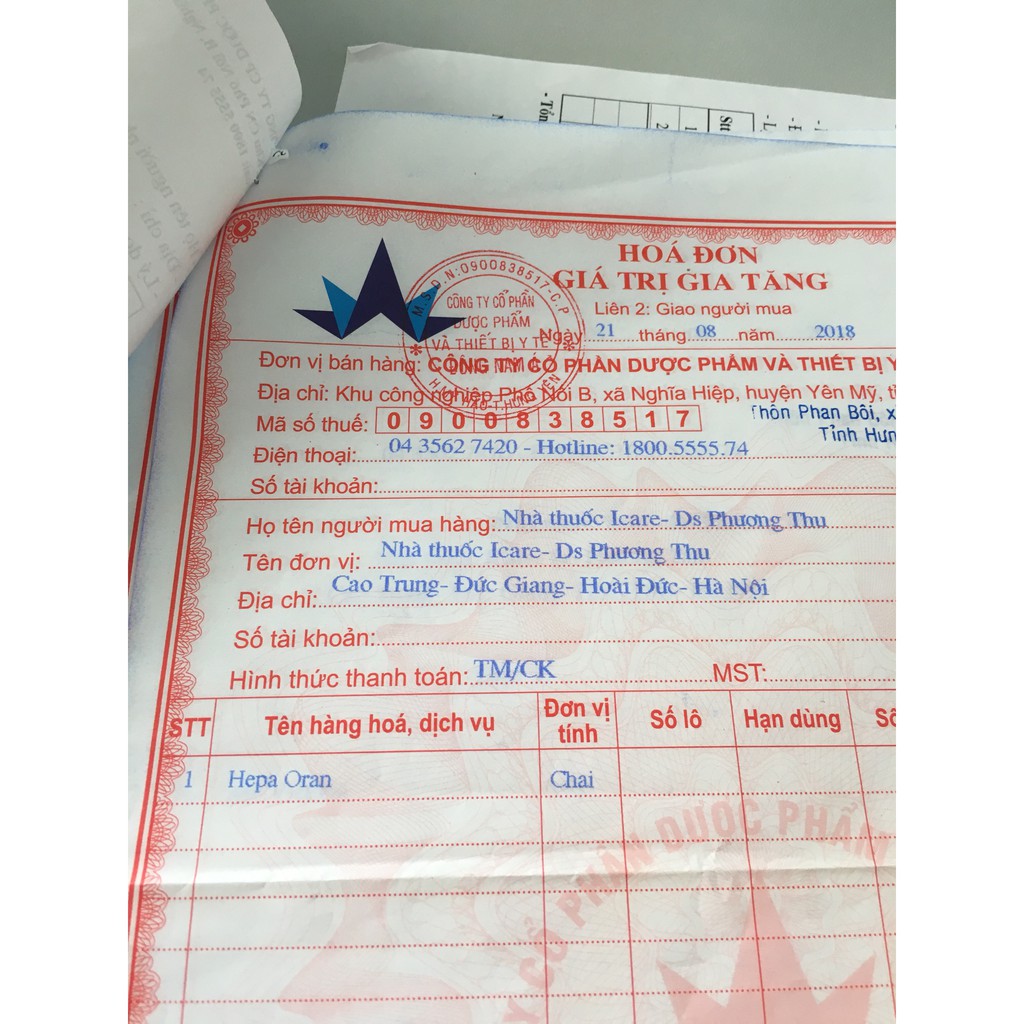 HOÁ ĐƠN
GIÁ TRỊ GIA TĂNG
Liên 2: Giao người mua
Ngày 21 tháng 08 năm 2018
M.S.D.N:0900838517-C.P
CÔNG TY CỔ PHẦN
DƯỢC PHẨM
VÀ THIẾT BỊ Y TẾ
Đơn vị bán hàng: CÔNG TY CỔ PHẦN DƯỢC PHẨM VÀ THIẾT BỊ Y
Địa chỉ: Khu công nghiệp Phố Nối B, xã Nghĩa Hiệp, huyện Yên Mỹ, t
Mã số thuế: 0900838517
Thôn Phan Bôi, x
Tỉnh Hưn
Điện thoại: 04 3562 7420 - Hotline: 1800.5555.74
Số tài khoản:
Họ tên người mua hàng: Nhà thuốc Icare- Ds Phương Thu
Tên đơn vị: Nhà thuốc Icare- Ds Phương Thu
Địa chỉ: Cao Trung- Đức Giang- Hoài Đức- Hà Nội
Số tài khoản:
Hình thức thanh toán: TM/CK MST:
STT Tên hàng hoá, dịch vụ Đơn vị tính Số lô Hạn dùng Số
1 Hepa Oran Chai
CỔ PHẦN DƯỢC PHẨM